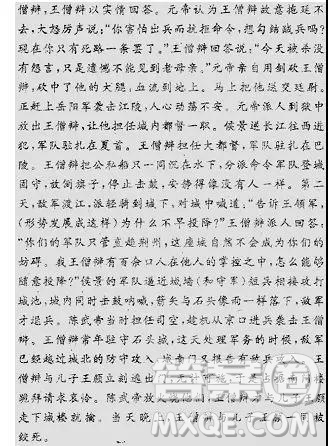 僧辩,王僧辩以实情回答。元帝认为王僧辩故意拖延不
去,大怒厉声说:“你害怕出兵而抗拒命令,想勾结贼兵吗?
现在你只有死路一条罢了。”王僧辩回答说:“今天被杀没
有怨言,只是遗憾不能见到老母亲。”元帝亲自用剑砍王僧
辩,砍中了他的大腿,血流到地上。马上把他送交廷尉。
正赶上岳阳军袭击江陵,人心动荡不安。元帝派人到狱中
放出王僧辩,让他担任城内都督一职。侯景逆长江往西进
犯,军队驻扎在夏首。王僧辩担任大都督,军队驻扎在巴
陵。王僧辩把公私船只一同沉在水下,分派命令军队登城
固守,放倒旗子,停止击鼓,安静得像没有人一样。第二
天,敌军渡江,派轻骑到城下,对城中喊道:“告诉王领军,
(形势发展成这样)为什么不早投降?”王僧辩派人回答:
“你们的军队只管直趋荆州,这座城自然不会成为你们的
妨碍。我王僧辩有百余口人在他人的掌控之中,怎么能够
随意投降?”侯景的军队逼近城墙(和守军)短兵相接攻打
城池,城内同时击鼓呐喊,箭矢与石头像雨一样落下,敌军
才退兵。陈武帝当时担任司空,趁机从京口进兵袭击王僧
辩。王僧辩常年驻守石头城,这天处理军务的时候,敌军
已经越过城北的防守攻入
僧辩与儿子王颁立刻逃出
跪拜请求哀怜。陈武帝放火
走下城楼就擒。当天晚上,王僧辩与儿子王颁一同被
绞死。